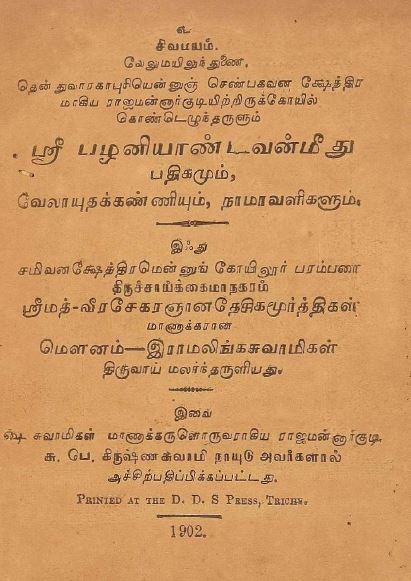 உ
சிவமயம்.
வேலுமயிலுந்துணை.
தென் துவாரகாபுரியென்னுஞ் செண்பகவன க்ஷேத்திர
மாகிய ராஜமன்னார்குடியிற்றிருக்கோயில்
கொண்டெழுந்தருளும்
ஸ்ரீ பழனியாண்டவன்மீது
பதிகமும்,
வேலாயுதக்கண்ணியும், நாமாவளிகளும்.
இஃது
சமிவனக்ஷேத்திரமென்னுங் கோயிலூர் பரம்பரை
திருச்சாய்க்கைமாநகரம்
ஸ்ரீமத்-வீரசேகரஞானதேசிகமூர்த்திகள்
மாணாக்கரான
மௌனம்—இராமலிங்கசுவாமிகள்
திருவாய் மலர்ந்தருளியது.
இவை
ஷை சுவாமிகள் மாணாக்கருளொருவராகிய ராஜமன்னார்குடி
சு. பே. கிருஷ்ணசுவாமி நாயுடு அவர்களால்
அச்சிற்பதிப்பிக்கப்பட்டது.
PRINTED AT THE D. D. S PRESS, TRICHY.
1902.